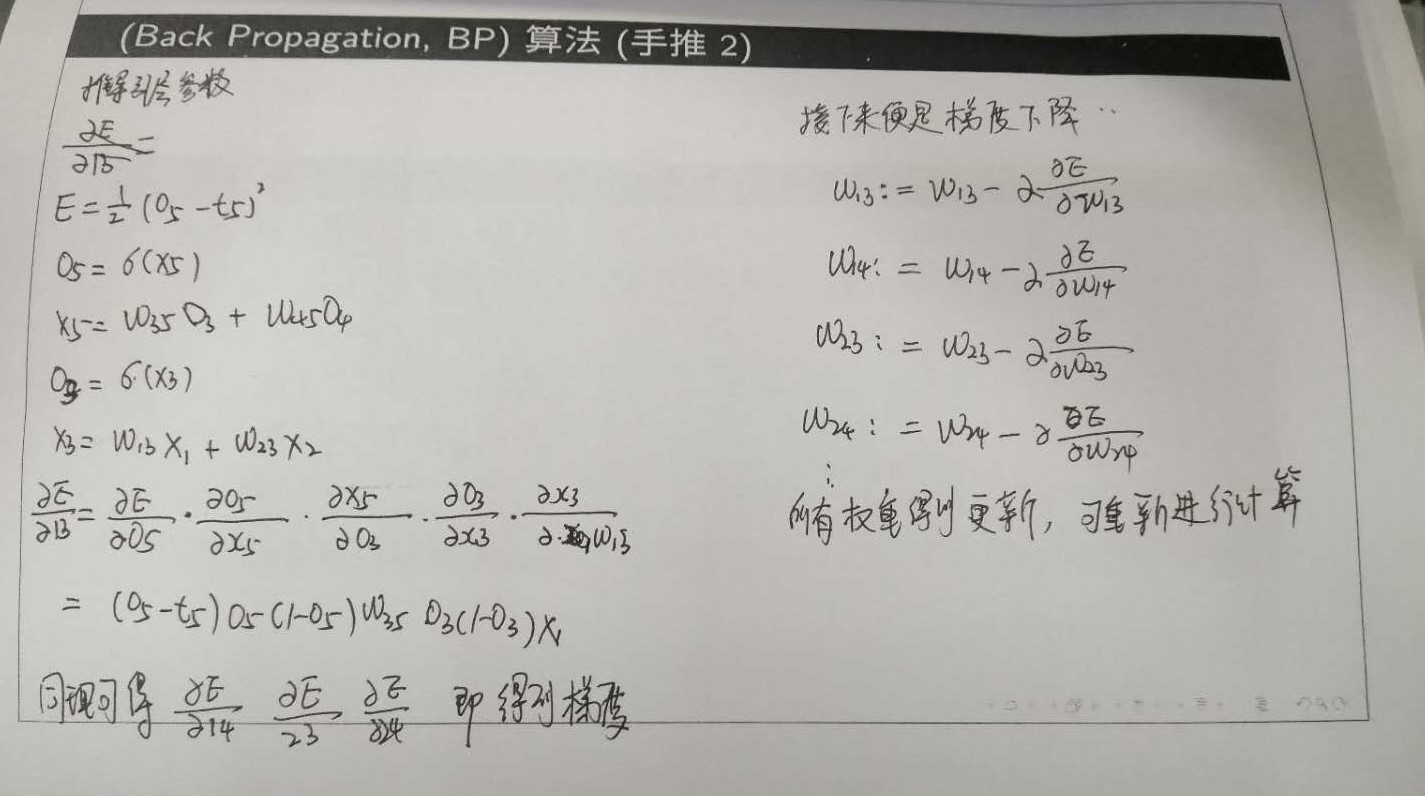 (Back Propagation, BP) 算法 (手推 2)
推导引层参数
∂E/∂13 =
E = 1/2 (O5 - t5)²
O5 = σ(x5)
x5 = W35 O3 + W45 O4
O3 = σ(x3)
x3 = W13 x1 + W23 x2
∂E/∂13 = ∂E/∂O5 · ∂O5/∂x5 · ∂x5/∂O3 · ∂O3/∂x3 · ∂x3/∂W13
= (O5 - t5) O5 (1-O5) W35 O3 (1-O3) x1
同理可得 ∂E/∂14 ∂E/23 ∂E/∂24 即得到梯度
接下来便是梯度下降··
W13 := W13 - ∂ ∂E/∂W13
W14 := W14 - ∂ ∂E/∂W14
W23 := W23 - ∂ ∂E/∂W23
W24 := W24 - ∂ ∂E/∂W24
⋮
所有权重得到更新, 可重新进行计算